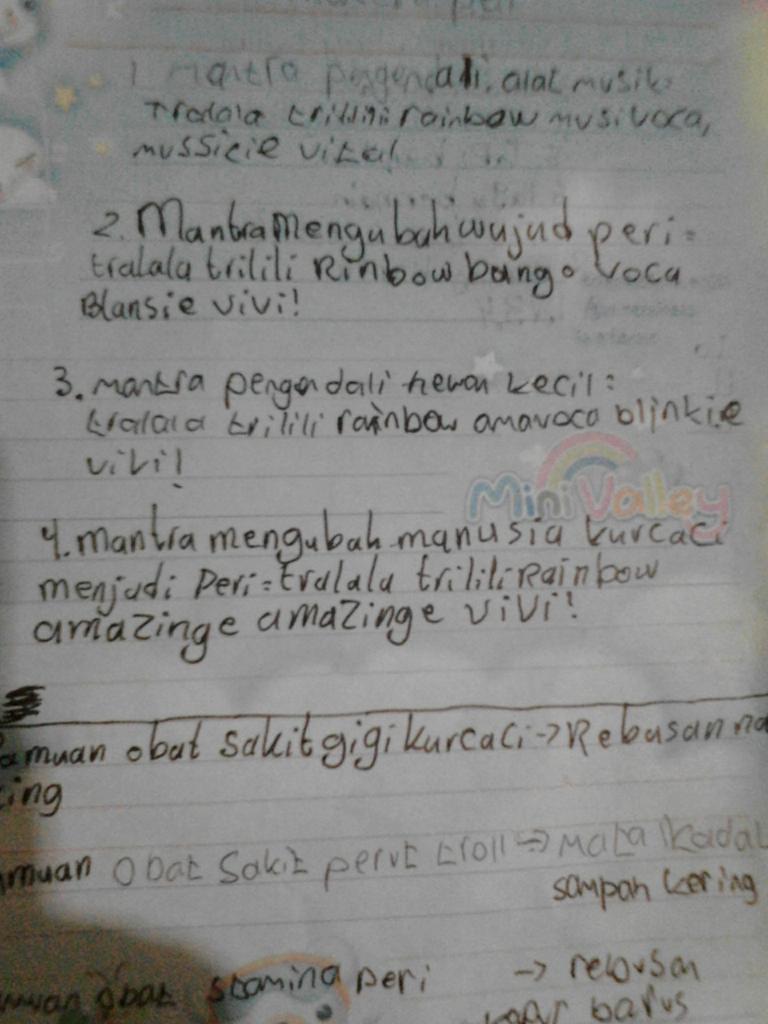 mantra peri
1 mantra pengendali alat musik
Tralala trilili rainbow musivoca,
mussicie vival
2. Mantra Mengubah wujud peri =
tralala trilili Rinbow bango voca
Blansie vivi!
3. mantra pengendali hewan kecil :
tralala trilili rainbow amavoca blinkie
vivi!
Mini Valley
4. mantra mengubah manusia kurcaci
menjadi Peri = tralala trilili Rainbow
amazinge amazinge vivi!
amuan obat sakit gigi kurcaci -> Rebusan na
ing
muan obat sakit perut troll => mata kadal
sampah kering
muan obat stamina peri -> rebusan
barus